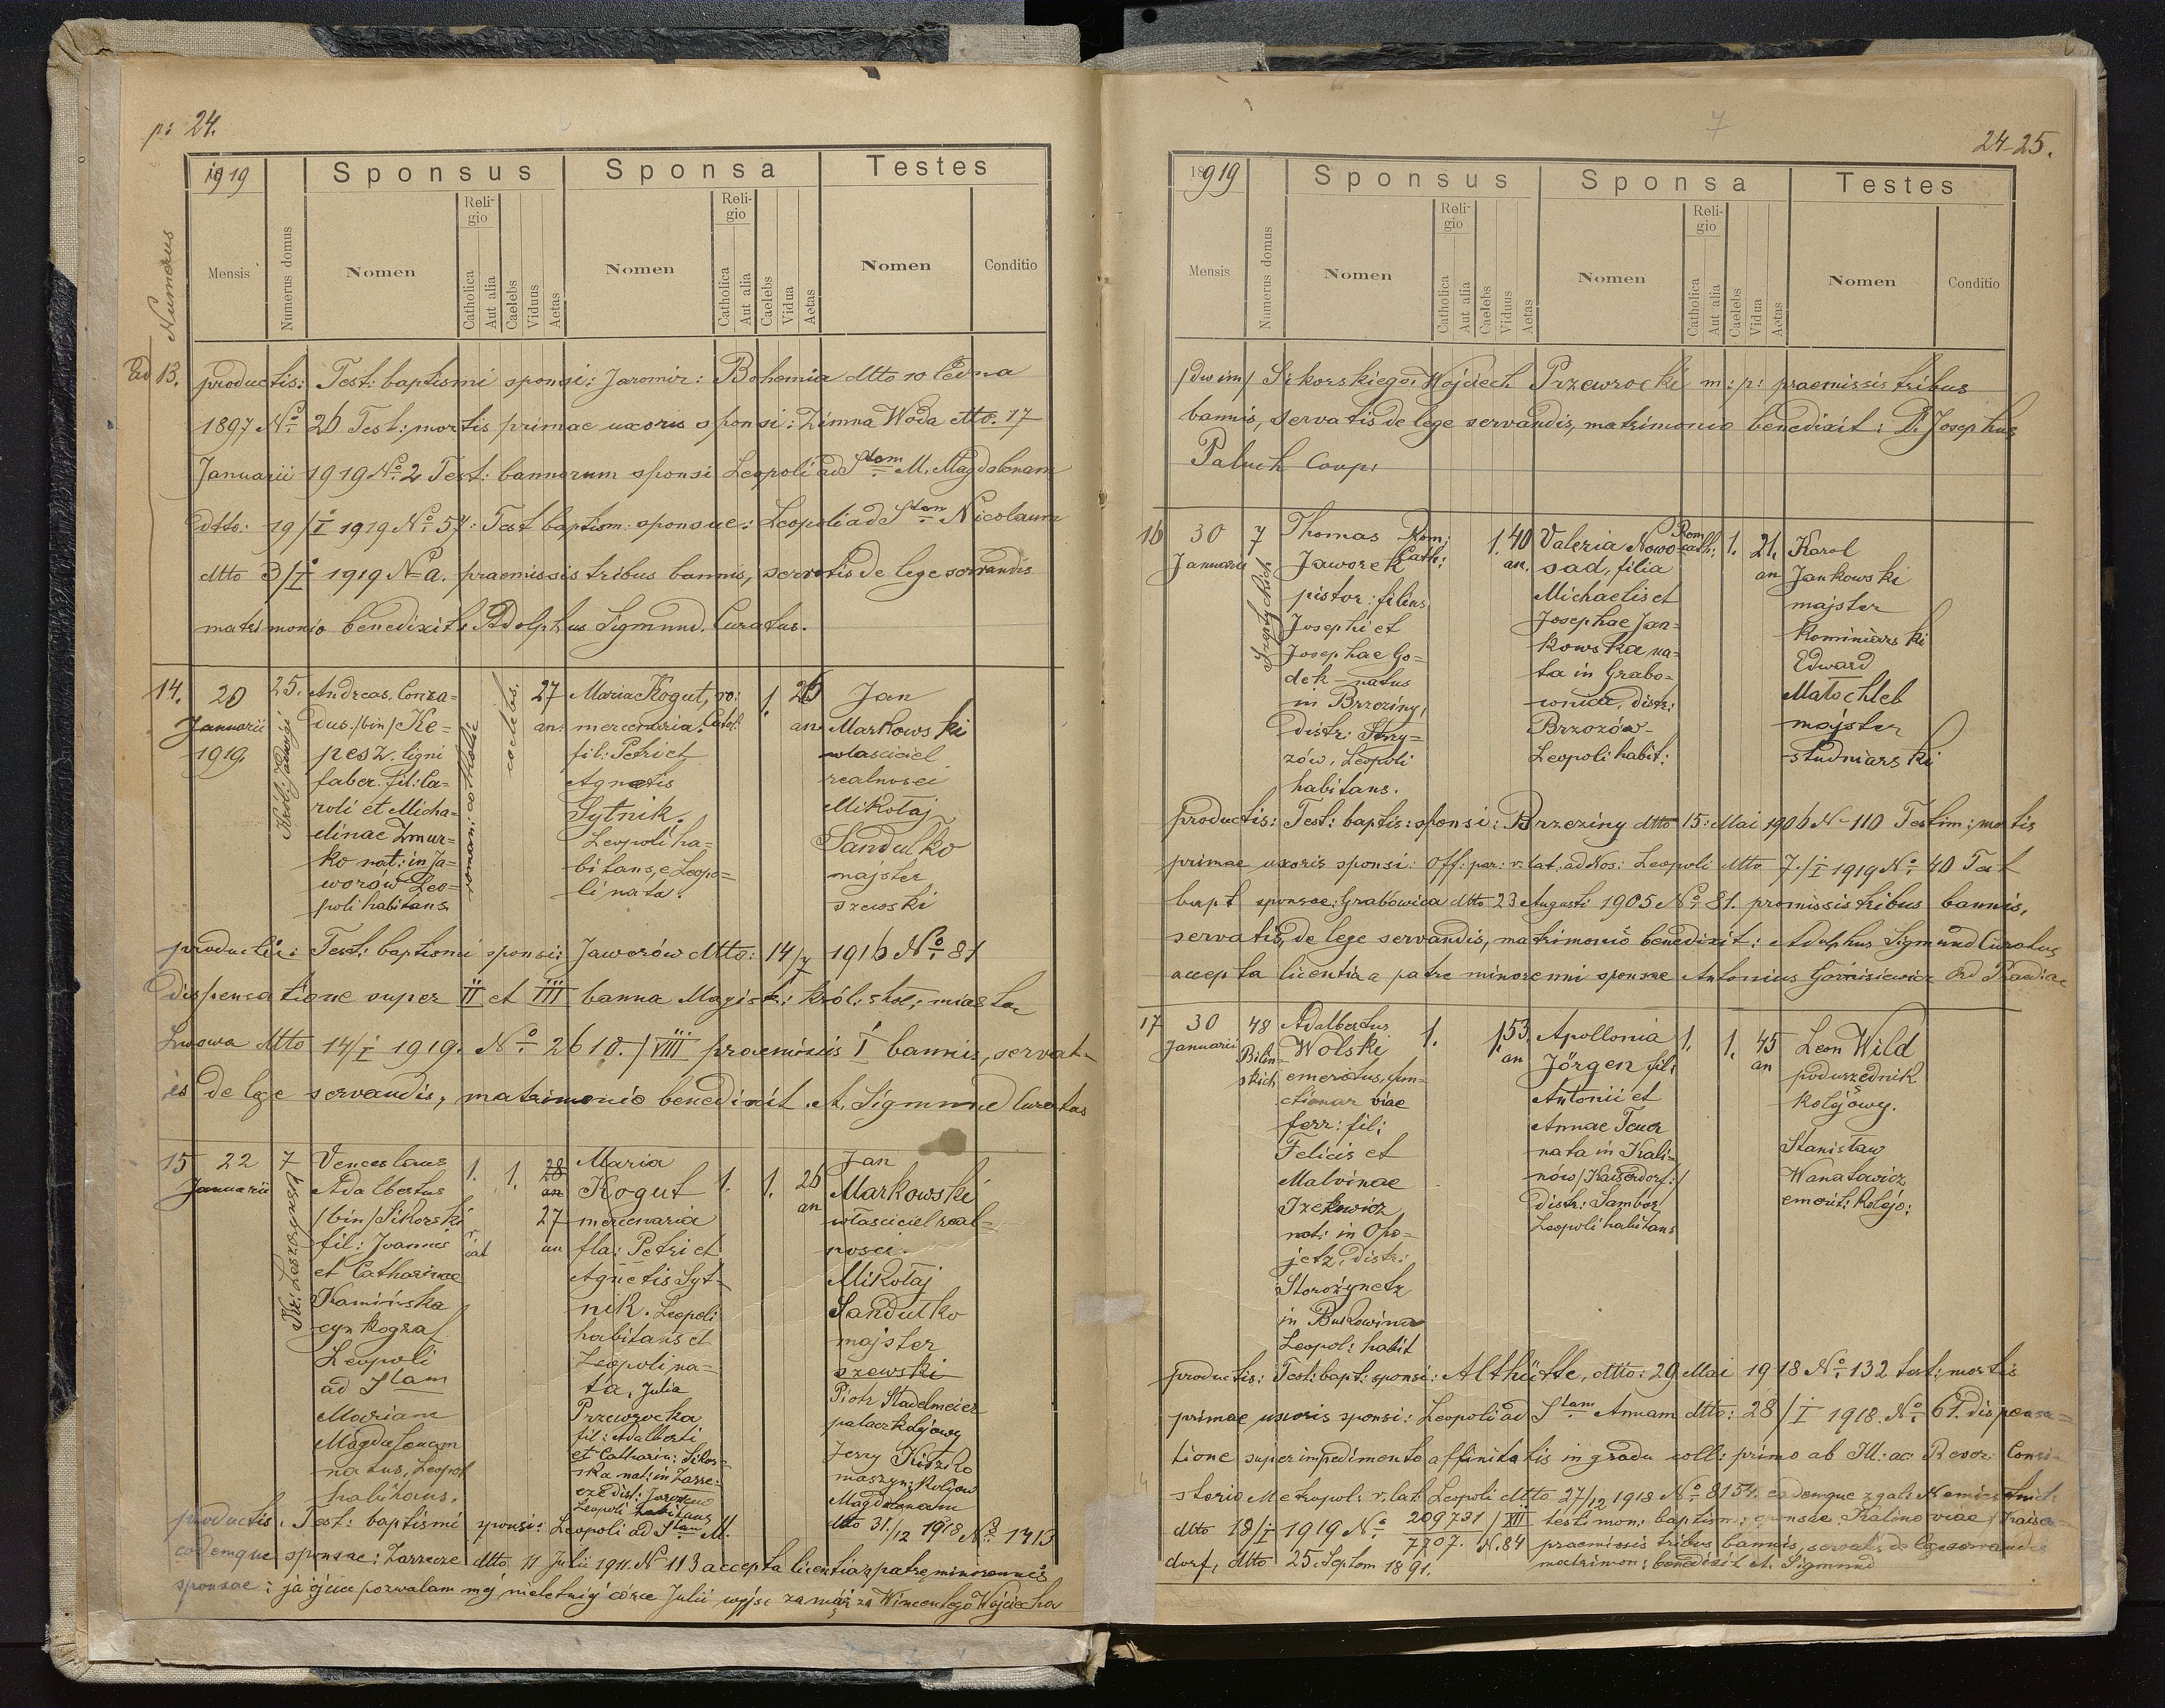 p: 24.
1919
Sponsus
Sponsa
Testes
Numerus
Mensis
Numerus domus
Nomen
Religio
Catholica
Aut alia
Caelebs
Viduus
Aetas
Nomen
Religio
Catholica
Aut alia
Caelebs
Vidua
Aetas
Nomen
Conditio
Ad 13. productis: Test: baptismi sponsi: Jaromir: Bohemia dtto 10 ledna
1897 No. 26 Test: mortis primae uxoris sponsi: Zimna Woda dtto. 17
Januarii 1919 No. 2 Test: bannorum sponsi Leopoli ad Stam M. Magdalenam
dtto: 19/I 1919 No. 57: Test baptism: sponsae: Leopoli ad Stum Nicolaum
dtto 3/I 1919 No a. praemissis tribus bannis, servatis de lege servandis
matrimonio benedixit: Adolphus Sigmund. Curatus.
14.
20
Januarii
1919.
25.
Król: Jadwigi
Andreas, Conra=
dus. /bin/ Ke=
pesz. ligni
faber. fil: Ca=
roli et Micha=
elinae Zmur=
ko nat: in Ja=
worów Leo=
poli habitans.
roman: catholic
coelebs.
27
an:
Maria Kogut, ro:
mercenaria. Cathol:
fil: Petri et
Agnetis
Sytnik.
Leopoli ha=
bitans, e Leopo=
li nata.
1.
26
an.
Jan
Markowski
wlasciciel
realnosci
Mikołaj
Sandulko
majster
szewski
productis: Test: baptismi sponsi: Jaworów dtto: 14/X 1916 No. 81
dispensatione super II et III banna Magist: król: stoł: miasta
Lwowa dtto 14/I 1919. No. 2610./VIII praemissis I bannis, servat-
is de lege servandis, matrimonio benedixit. A. Sigmund Curatus
15
22
Januarii
7
Kr: Leszczynski
Venceslaus
Adalbertus
/bin/ Sikorski
fil: Joannis
et Catharinae
Kamińska
cynkograf
Leopoli
ad Stam
Mariam
Magdalenam
natus, Leopol
habitans.
1.
1.
28
an
27
an
Maria
Kogut
mercenaria
fla: Petri et
Agnetis Syt-
nik. Leopoli
habitans et
Leopoli na=
ta, Julia
Przewrocka
fil: Adalberti
et Catharin: Sikor=
ska nat: in Zarze:
cze dist: Jarosław
Leopoli habitans
1.
1.
26
an
Jan
Markowski
własciciel real=
nosci.
Mikołaj
Sandulko
majster
szewski
Piotr Stadelmeier
palacz kolejowy
Jerzy
maszyn: Kolejow
Magdalenam
dtto 31./12 1918 No 1413
productis: Test: baptismi sponsi: Leopoli ad Stam M.
eodemque sponsae: Zarzecze dtto 11 Julii 1911. No 113 accepta licentia a patre minorennis
sponsae: ja ojciec pozwalam mej nieletniej córce Julii wyjsc za mąż za Wincentego Wojciecha
7
24-25.
1919
Sponsus
Sponsa
Testes
Mensis
Numerus domus
Nomen
Religio
Catholica
Aut alia
Caelebs
Viduus
Aetas
Nomen
Religio
Catholica
Aut alia
Caelebs
Vidua
Aetas
Nomen
Conditio
/dw im/ Sikorskiego, Wojciech Przewrocki m: p: praemissis tribus
bannis, servatis de lege servandis, matrimonio benedixit: D. Josephus
Paluch Coop:
16
30
Januarii
7
Thomas
Jaworek
pistor: filius
Josephi et
Josephae Go=
dek - natus
in Brzeziny,
Distr: Stry=
zów, Leopoli
habitans.
Rom:
Cath:
1.
40
an.
Valeria Nowo=
sad, filia
Michaelis et
Josephae Jan=
kowska na=
ta in Grabo=
wnica, distr:
Brzozów-
Leopoli habit:
Rom
cath:
1.
21.
an
Karol
Jankowski
majster
kominiarski
Edward
Matochleb
majster
studniarski
productis: Test: baptis: sponsi: Brzeziny dtto 15: Mai 1906 No 110 Testim: mortis
primae uxoris sponsi: Off: par: r. lat. ad Nos: Leopoli dtto 7./I 1919 No. 40 Test
bapt sponsae: Grabownica dtto 23 Augusti 1905 No. 81. promissis tribus bannis,
servatis, de lege servandis, matrimonio benedixit: Adolphus Sigmund Curatus
accepta licentia a patre minorenni sponsae Antonius
17
30
Januarii
48
Bilin=
skich
Adalbertus
Wolski
emeritus, fun=
ctionar viae
ferr: fil:
Felicis et
Malvinae
nat: in Opo=
jetz, distr:
Storożynetz
in Bukowina
Leopol: habit
1.
1.
53.
an
Apollonia
Jörgen fil:
Antonii et
Annae
nata in Kali=
nów /Kaiserdorf:/
distr: Sambor
Leopoli habitans
1.
1.
45
an
Leon Wild
podurzednik
kolejowy.
Stanisław
Wanatowicz
emerit: kolejo:
productis: Test: bapt: sponsi: Althütte, dtto: 29 Mai 1918 No. 132 test: mortis
primae uxoris sponsi: Leopoli ad Stam Annam dtto: 28/I 1918. No. 61. dispensa=
tione super impedimento affinitatis in gradu coll: primo ab Ill: ac Rever: Consi=
storio Metropol: r. lat Leopoli dtto 27/12 1918 No. 8154. eademque z gal: Namiestnict:
dtto 18/I 1919 No. 209731/7707. /XII testimon: baptism: sponsae Kalinoviae /Kaiser=
dorf, dtto 25. Septem 1891. N. 84 praemissis tribus bannis, servatis de lege servandis
matrimon: benedixit A. Sigmund